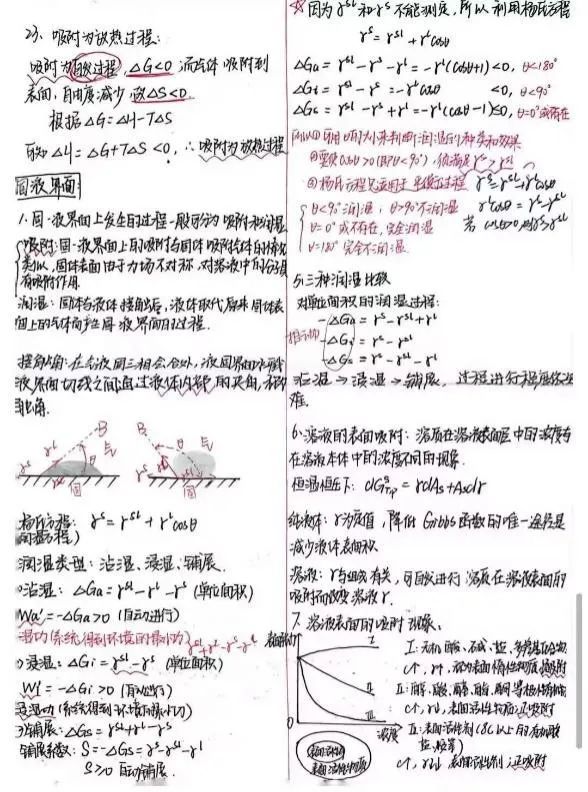 23. 吸附为放热过程:
吸附为自发过程, △G<0 流气体吸附到
表面, 自由度减少, 故△S<0
根据△G=△H-T△S
可知△H=△G+T△S<0, ∴吸附为放热过程
固液界面:
1. 固-液界面上发生的过程一般可分为吸附和润湿
吸附: 固-液界面上的吸附与固体吸附气体的情况
类似, 固体表面由于力场不对称, 对溶液中的分子具
有吸附作用.
润湿: 固体与液体接触后, 液体取代原来固体表
面上的气体而产生固-液界面的过程.
接触角: 在气液固三相会合处, 液固界面
液界面切线之间通过液体内部的夹角, 称为
接触角.
B
γl
气
γs
θ
固
B
γl
θ
气
γs
γsl
固
杨氏方程: γs=γsl+γlcosθ
(润湿方程)
润湿类型: 沾湿、浸湿、铺展.
沾湿: △Ga=γsl-γs-γl (单位面积)
Wa'=-△Ga>0 (自动进行)
沾湿功(系统得到环境的最小功)
浸湿: △Gi=γsl-γs (单位面积)
Wi'=-△Gi>0 (自动进行)
浸湿功(系统得到环境的最小功)
铺展: △Gs=γsl+γl-γs
铺展系数: S=-△Gs=γs-γsl-γl
S>0 自动铺展.
因为γsl和γs不能测定, 所以利用杨氏方程
γs=γsl+γlcosθ
△Ga=γsl-γs-γl=-γl(cosθ+1)<0, θ<180°
△Gi=γsl-γs=-γlcosθ <0, θ<90°
△Gs=γsl-γs+γl=-γl(cosθ-1)≤0, θ=0°或不存在
所以①可用θ的大小来判断润湿的种类和效果
②要使cosθ>0(即θ<90°), 须满足γs>γsl
③杨氏方程只适用于平衡过程 γs=γsl+γlcosθ
θ<90°润湿; θ>90°不润湿 γlcosθ=γs-γsl
θ=0°或不存在, 完全润湿 若cosθ>0, 则γs>γsl
θ=180°完全不润湿.
5. 三种润湿比较
对单位面积的润湿过程:
-△Ga=γs-γsl+γl
-△Gi=γs-γsl
-△Gs=γs-γsl-γl
沾湿→浸湿→铺展, 过程进行程度依次
难.
6. 溶液的表面吸附: 溶质在溶液表面层中的浓度与
在溶液本体中的浓度不同的现象.
恒温恒压下: dG=γdAs+Asdγ
纯液体: γ为定值, 降低Gibbs函数的唯一途径是
减少液体表面积.
溶液: γ与组成有关, 可自发进行溶质在溶液表面的
吸附而改变溶液γ.
7. 溶液表面的吸附现象.
表面张力
I
II
III
0
浓度
I: 无机酸、碱、盐、多羟基化合物
c↑, γ↑, 称为表面惰性物质
II: 醇、酸、醛、酯、酮等极性有机物
c↑, γ↓, 表面活性物质: 正吸附
III: 表面活性剂(8C以上的有机酸
盐、胺等)
c↑, γ↓↓, 表面活性剂: 正吸附
表面活性剂
表面活性物质